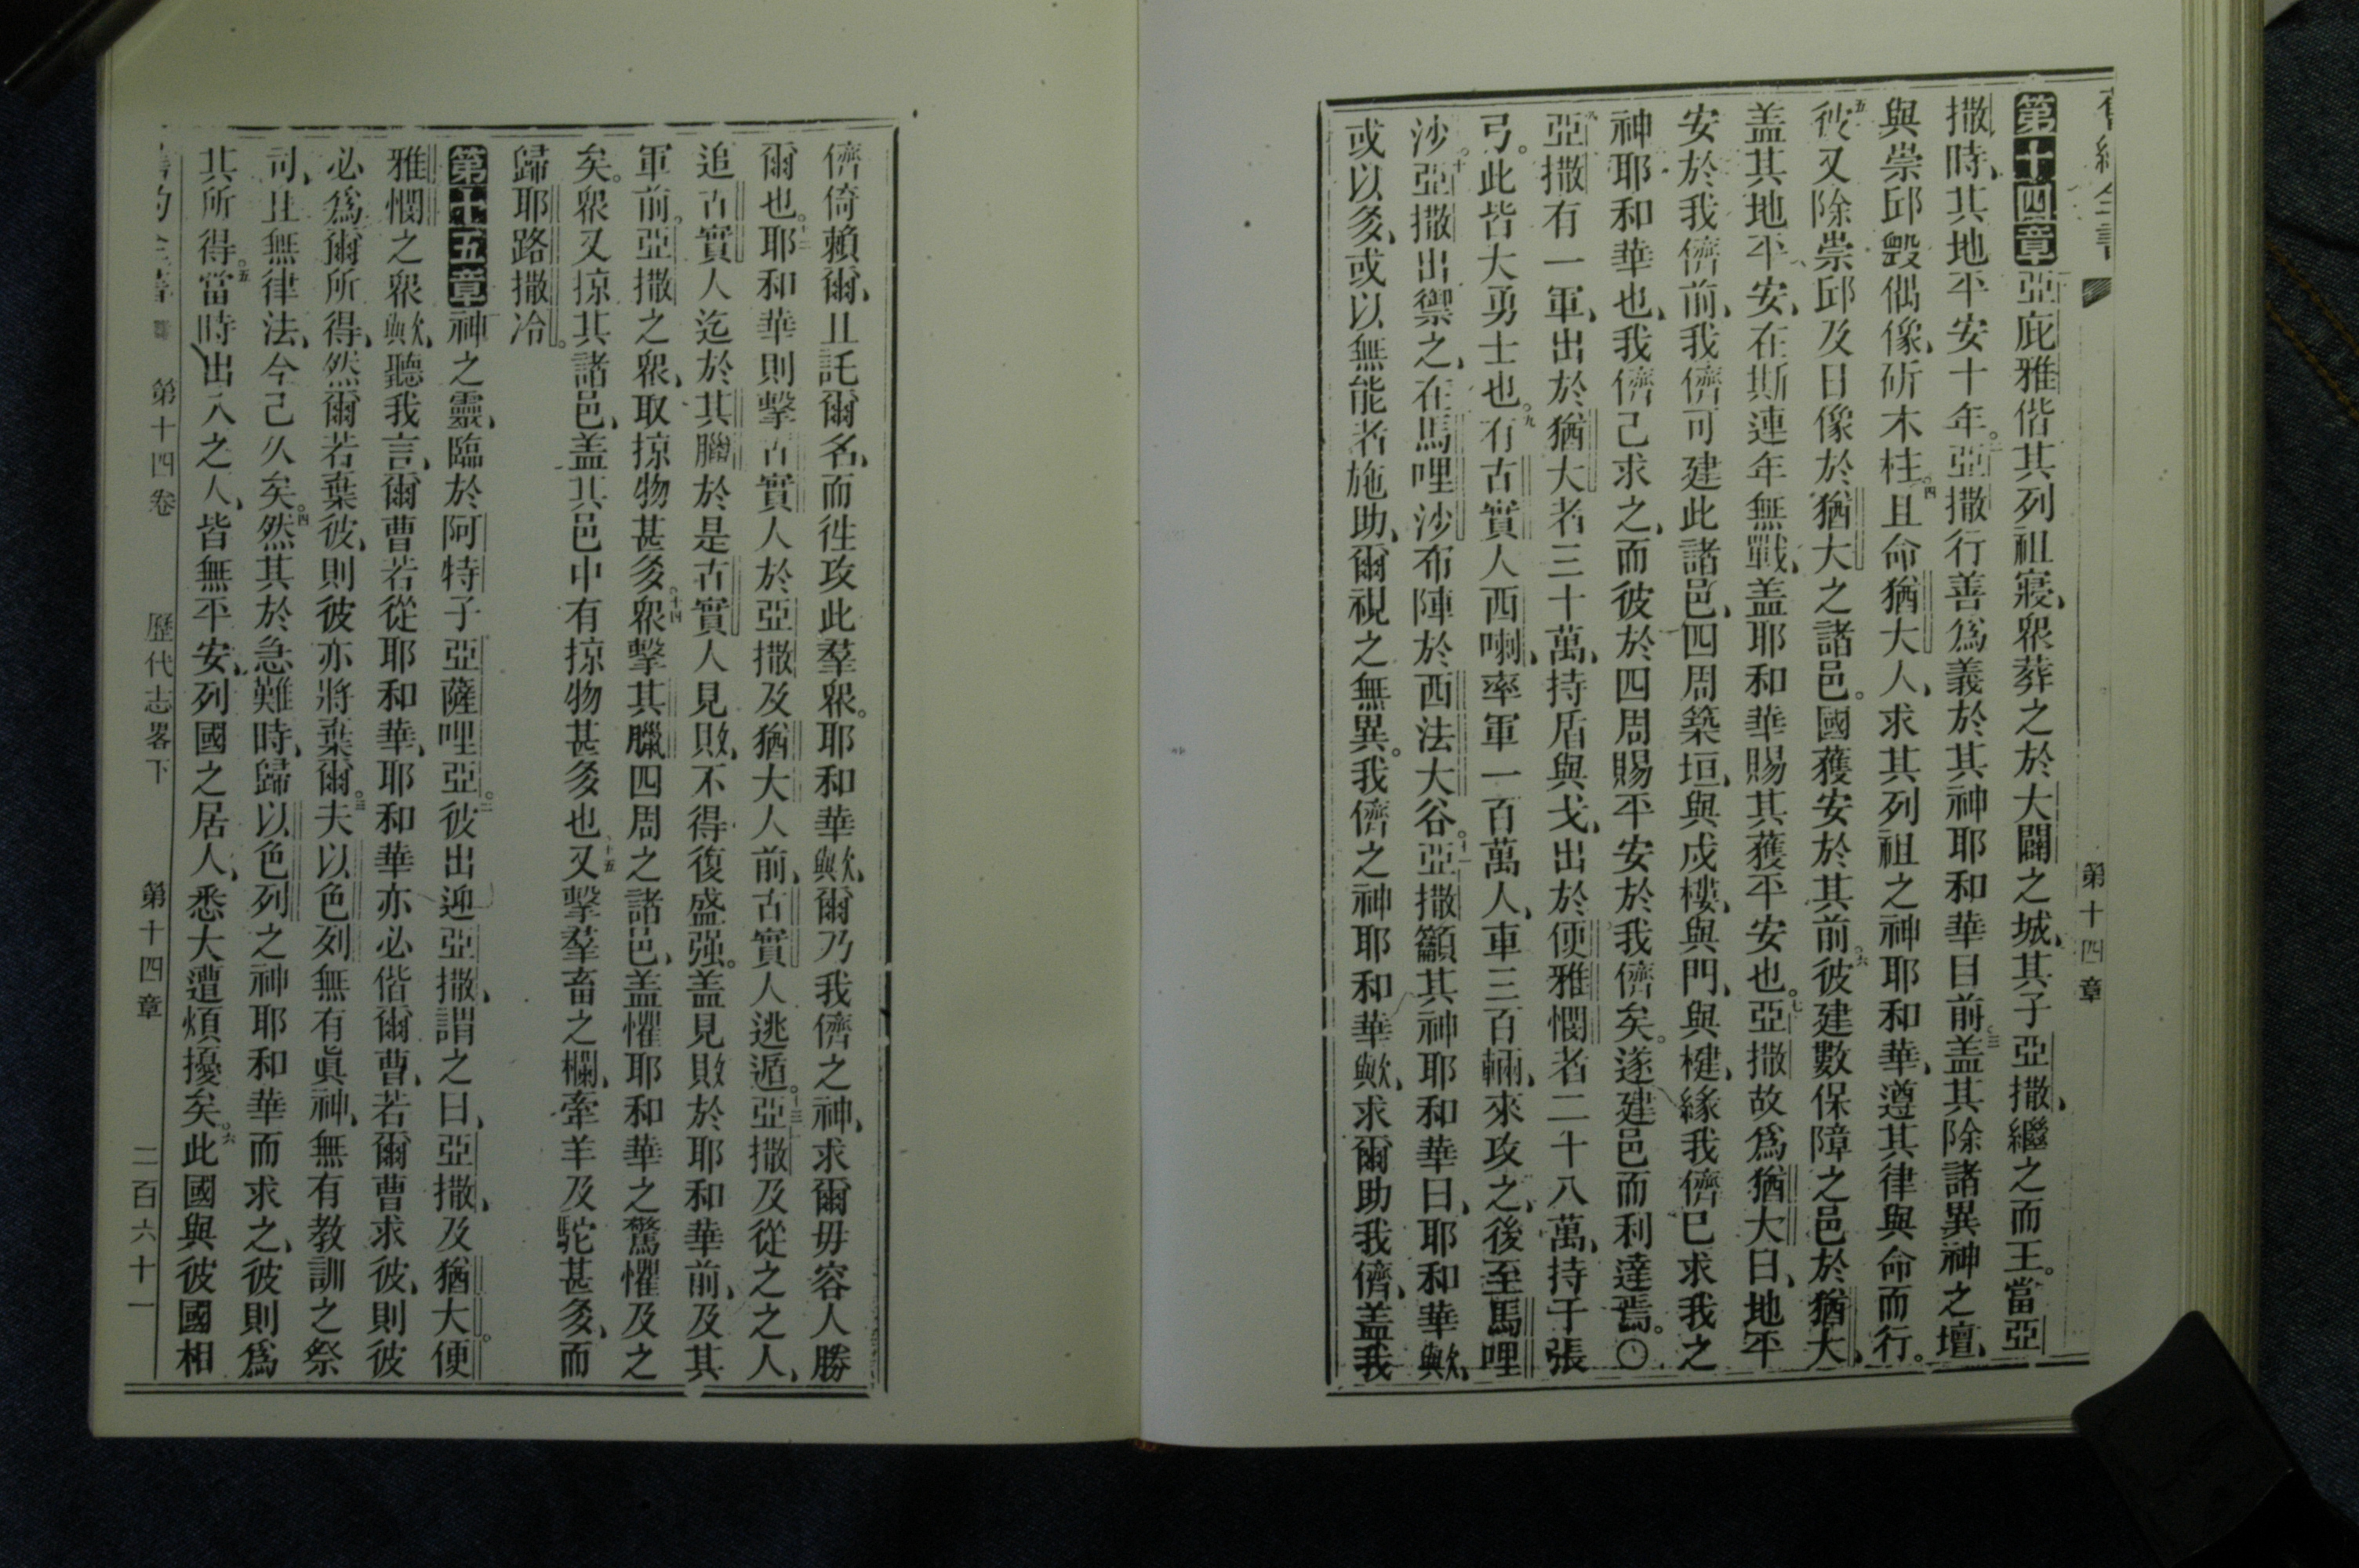 第十四章
第十四章亞庇雅偕其列祖寢、眾葬之於大闢之城、其子亞撒、繼之而王。當亞
撒時、其地平安十年。二亞撒行善爲義於其神耶和華目前。三盖其除諸異神之壇、
與崇邱毀偶像、斫木柱。四且命猶大人、求其列祖之神耶和華、遵其律與命而行。
五彼又除崇邱及日像於猶大之諸邑。國獲安於其前。六彼建數保障之邑於猶大、
盖其地平安、在斯連年無戰、盖耶和華賜其獲平安也。七亞撒故爲猶大曰、地平
安於我儕前、我儕可建此諸邑、四周築垣、與戍樓、與門、與楗、緣我儕已求我之
神耶和華也、我儕己求之、而彼於四周賜平安於我儕矣。遂建邑而利達焉。〇
八亞撒有一軍、出於猶大者三十萬、持盾與戈、出於便雅憫者二十八萬、持干張
弓。此皆大勇士也。九有古實人西喇、率軍一百萬人、車三百輛、來攻之、後至馬哩
沙。十亞撒出禦之、在馬哩沙布陣於西法大谷。十一亞撒籲其神耶和華曰、耶和華歟、
或以多、或以無能者施助、爾視之無異。我儕之神耶和華歟、求爾助我儕、盖我
儕倚賴爾、且託爾名、而徃攻此羣眾。耶和華歟、爾乃我儕之神、求爾毋容人勝
爾也。十二耶和華則擊古實人於亞撒及猶大人前、古實人逃遁。十三亞撒及從之之人、
追古實人迄於其臘於是古實人見敗、不得復盛强。盖見敗於耶和華前、及其
軍前。亞撒之眾、取掠物甚多。十四眾擊其臘四周之諸邑、盖懼耶和華之驚懼及之
矣。眾又掠其諸邑、盖其邑中有掠物甚多也。十五又擊羣畜之欄、牽羊及駝甚多、而
歸耶路撒冷。
第十五章神之靈、臨於阿特子亞薩哩亞。二彼出迎亞撒、謂之曰、亞撒、及猶大。便
雅憫之眾歟、聽我言、爾曹若從耶和華、耶和華亦必偕爾曹、若爾曹求彼、則彼
必爲爾所得、然爾若棄彼、則彼亦將棄爾。三夫以色列無有眞神、無有教訓之祭
司、且無律法、今己久矣。四然其於急難時、歸以色列之神耶和華而求之、彼則爲
其所得。五當時出入之人、皆無平安、列國之居人、悉大遭煩擾矣。六此國與彼國相
第十四卷 歷代志畧下 第十四章 二百六十一